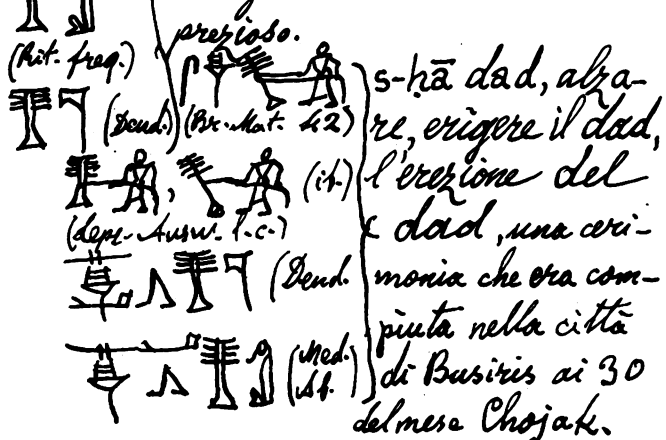 prezioso.
(Rit. freq.)
(Dend.)
(Br. Mat. 42)
(it.)
(Leps. Ausw. l.c.)
(Dend.
(Med. Ab.)
s-ḥā dad, alza-
re, erigere il dad,
l'erezione del
dad, una ceri-
monia che era com-
piuta nella città
di Busiris ai 30
del mese Chojak.